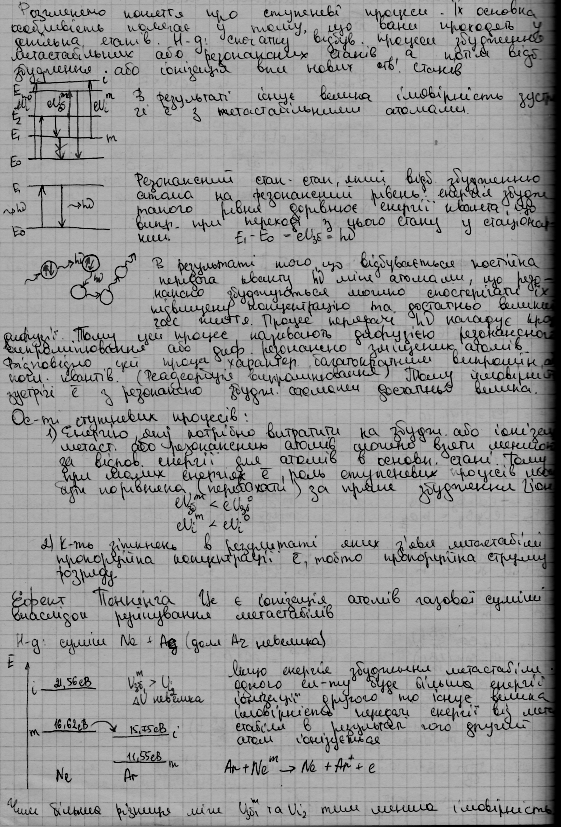 Розглянемо поняття про ступеневі процеси. Їх основна
особливість полягає у тому, що вони проходять у
декілька етапів. Н-д: спочатку відбув. процеси збудження
метастабільних або резонансних станів а потім відб.
збудження або іонізація вже нових станів
i
E₃
E₂
E₁ m
E₀
В результаті існує велика імовірність зустрі
чі ē з метастабільними атомами.
E₁
hν hν
E₀
Резонансний стан - стан, який відб. збудженню
атома на резонансний рівень. енергія збудже
такого рівня дорівнює енергії кванта, що
випр. при переході з цього стану у стаціонар
ний. E₁ - E₀ = eUзб = hν
В результаті того що відбувається постійна
передача кванту hν між атомами, що резо-
нансно збуджуються можно спостерігати їх
підвищену концентрацію та достатньо великий
час життя. Процес передачі hν нагадує про
дифузії. Тому цей процес називають дифузією резонансного
випромінювання або диф. резонансно збуджених атомів
Відповідно цей процес характер. багатократним випромін.
погл. квантів. (Реабсорбція випромінювання) Тому імовірність
зустрічі ē з резонансно збудж. атомами достатньо велика.
Ос-ті ступеневих процесів:
1) Енергію, яку потрібно витратити на збудж. або іонізац
метаст. або резонансних атомів можно взяти меншою
за відпов. енергії для атомів в основн. стані. Тому
при малих енергіях ē роль ступеневих процесів може
бути порівняна (переважати) за пряме збудження і іон
eUзбᵐ < eUзб⁰
eUiᵐ < eUi⁰
2) К-ть зіткнень в результаті яких з'яви метастабілі
пропорційна концентрації ē, тобто пропорційна струму
розряду.
Ефект Пеннінга Це є іонізація атомів газової суміші
внаслідок руйнування метастабілів
Н-д: суміш Ne + Ar (доля Ar невелика)
E
i 21,56 еВ Uзбᵐ > Ui₂
ΔU невелика
m 16,62 еВ 15,75 еВ i
11,55 еВ m
Ne Ar
Якщо енергія збудження метастабіля
одного ел-ту буде більша енергії
іонізації другого то існує велика
імовірність передачі енергії від мета
стабіля в результаті чого другий
атом іонізується
Ar + Neᵐ → Ne + Ar⁺ + e
Чим більша різниця між Uзбᵐ та Ui₂ тим менша імовірність